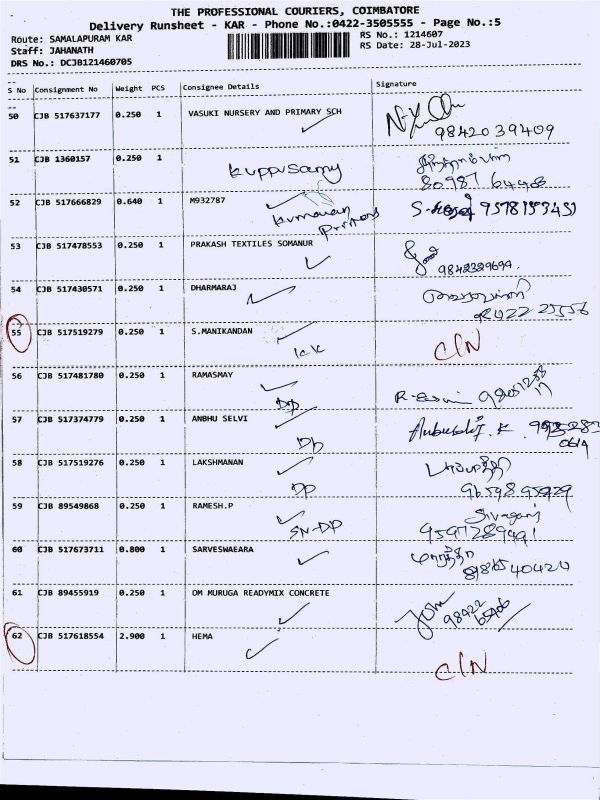 THE PROFESSIONAL COURIERS, COIMBATORE
Delivery Runsheet - KAR - Phone No.:0422-3505555 - Page No.:5
Route: SAMALAPURAM KAR
Staff: JAHANATH
DRS No.: DCJB121460705
RS No.: 1214607
RS Date: 28-Jul-2023
S No Consignment No Weight PCS Consignee Details Signature
50 CJB 517637177 0.250 1 VASUKI NURSERY AND PRIMARY SCH
98420 39409
51 CJB 1360157 0.250 1
kuppusamy
80987 64448
52 CJB 517666829 0.640 1 M932787
kumaran
Printers
53 CJB 517478553 0.250 1 PRAKASH TEXTILES SOMANUR
9842329699.
54 CJB 517430571 0.250 1 DHARMARAJ
55 CJB 517519279 0.250 1 S.MANIKANDAN
C/N
56 CJB 517481780 0.250 1 RAMASMAY
DP
57 CJB 517374779 0.250 1 ANBHU SELVI
Dp
58 CJB 517519276 0.250 1 LAKSHMANAN
DP
59 CJB 89549868 0.250 1 RAMESH.P
SN-DP
60 CJB 517673711 0.800 1 SARVESWAEARA
61 CJB 89455919 0.250 1 OM MURUGA READYMIX CONCRETE
62 CJB 517618554 2.900 1 HEMA
C/N